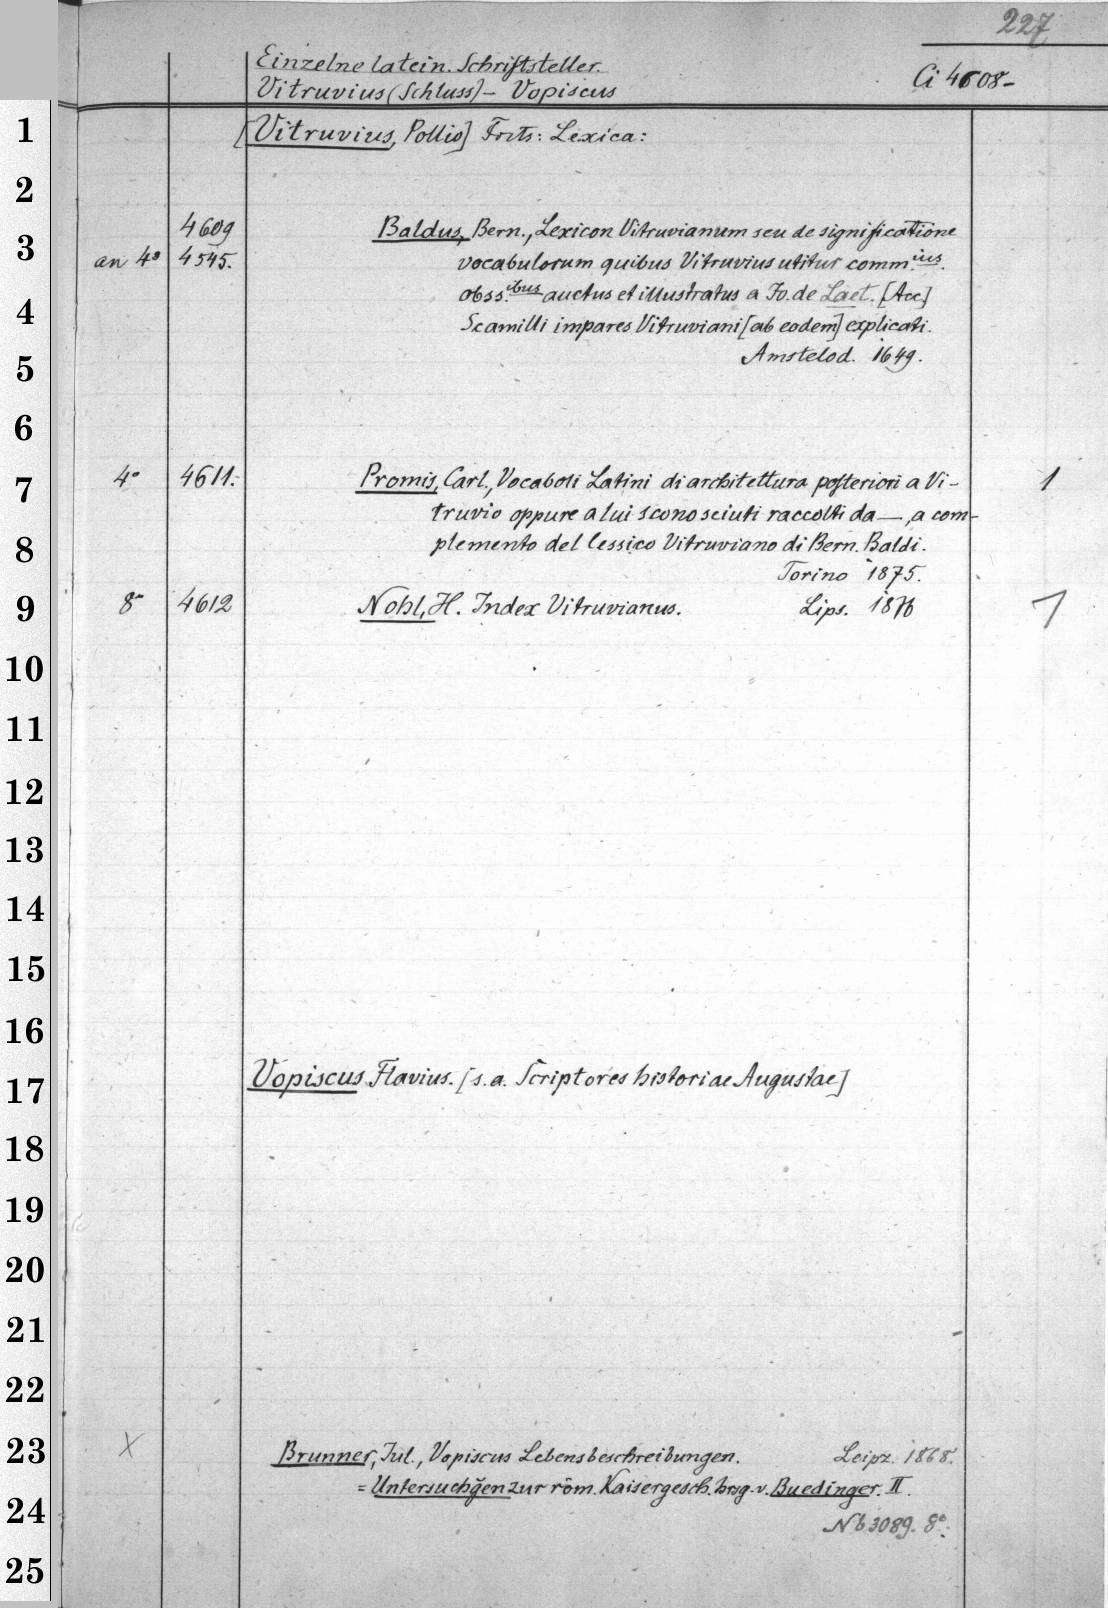 227
Einzelne latein. Schriftsteller.
Vitruvius (Schluss) - Vopiscus
Ci 4608-
1
[Vitruvius, Pollio] Forts: Lexica:
2
4609
Baldus, Bern., Lexicon Vitruvianum seu de significatione
3
an 4° 4545.
vocabulorum quibus Vitruvius utitur comm.ius.
obss.ibus auctus et illustratus a Jo. de Laet. [Acc]
4
Scamilli impares Vitruviani [ab eodem] explicati.
Amstelod. 1649.
5
6
7
4° 4611. Promis, Carl., Vocaboli Latini di architettura posteriori a Vi- 1
truvio oppure a lui sconosciuti raccolti da —, a com-
8
plemento del lessico Vitruviano di Bern. Baldi.
Torino 1875.
9
8° 4612 Nohl, H. Index Vitruvianus. Lips. 1876 1
10
11
12
13
14
15
16
17
Vopiscus Flavius. [s. a. Scriptores historiae Augustae]
18
19
20
21
22
23
X Brunner, Jul., Vopiscus Lebensbeschreibungen. Leipz. 1868.
= Untersuchg̃en zur röm. Kaisergesch. hrsg. v. Buedinger. II.
24
Nb 3089. 8°.
25